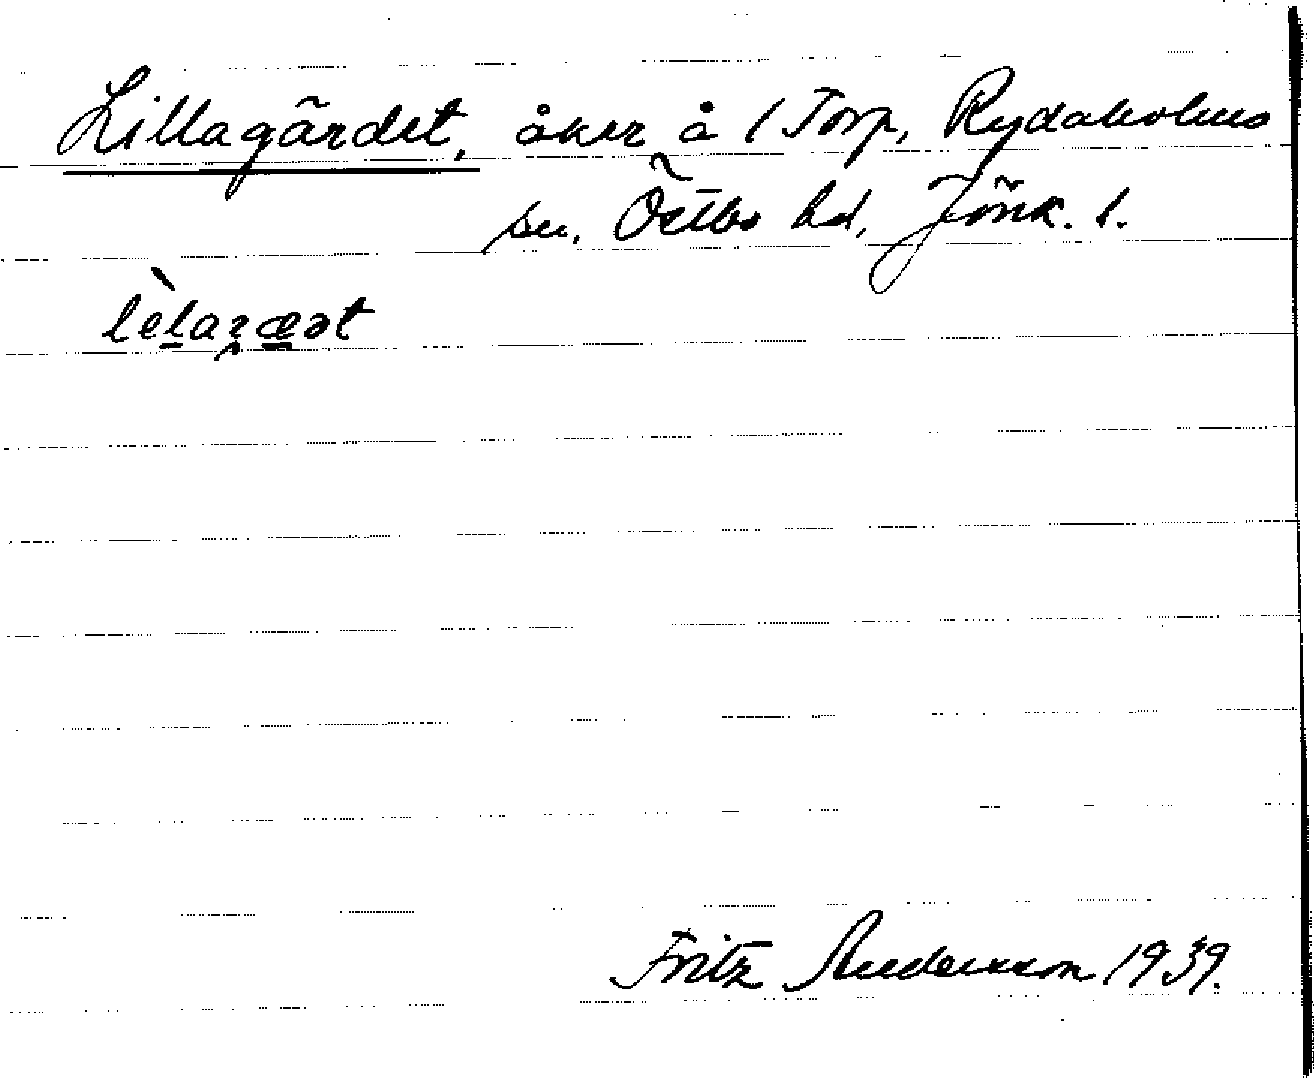 Lillagärdet, åker å 1 Torp, Rydaholms
sn. Östbo hd, Jönk. l.
Fritz Andersson 1939.